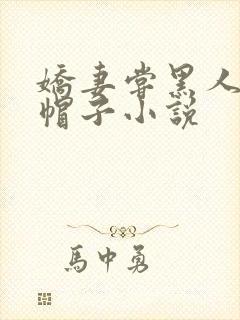 嬌妻嘗黑人
帽子小說
馬中勇